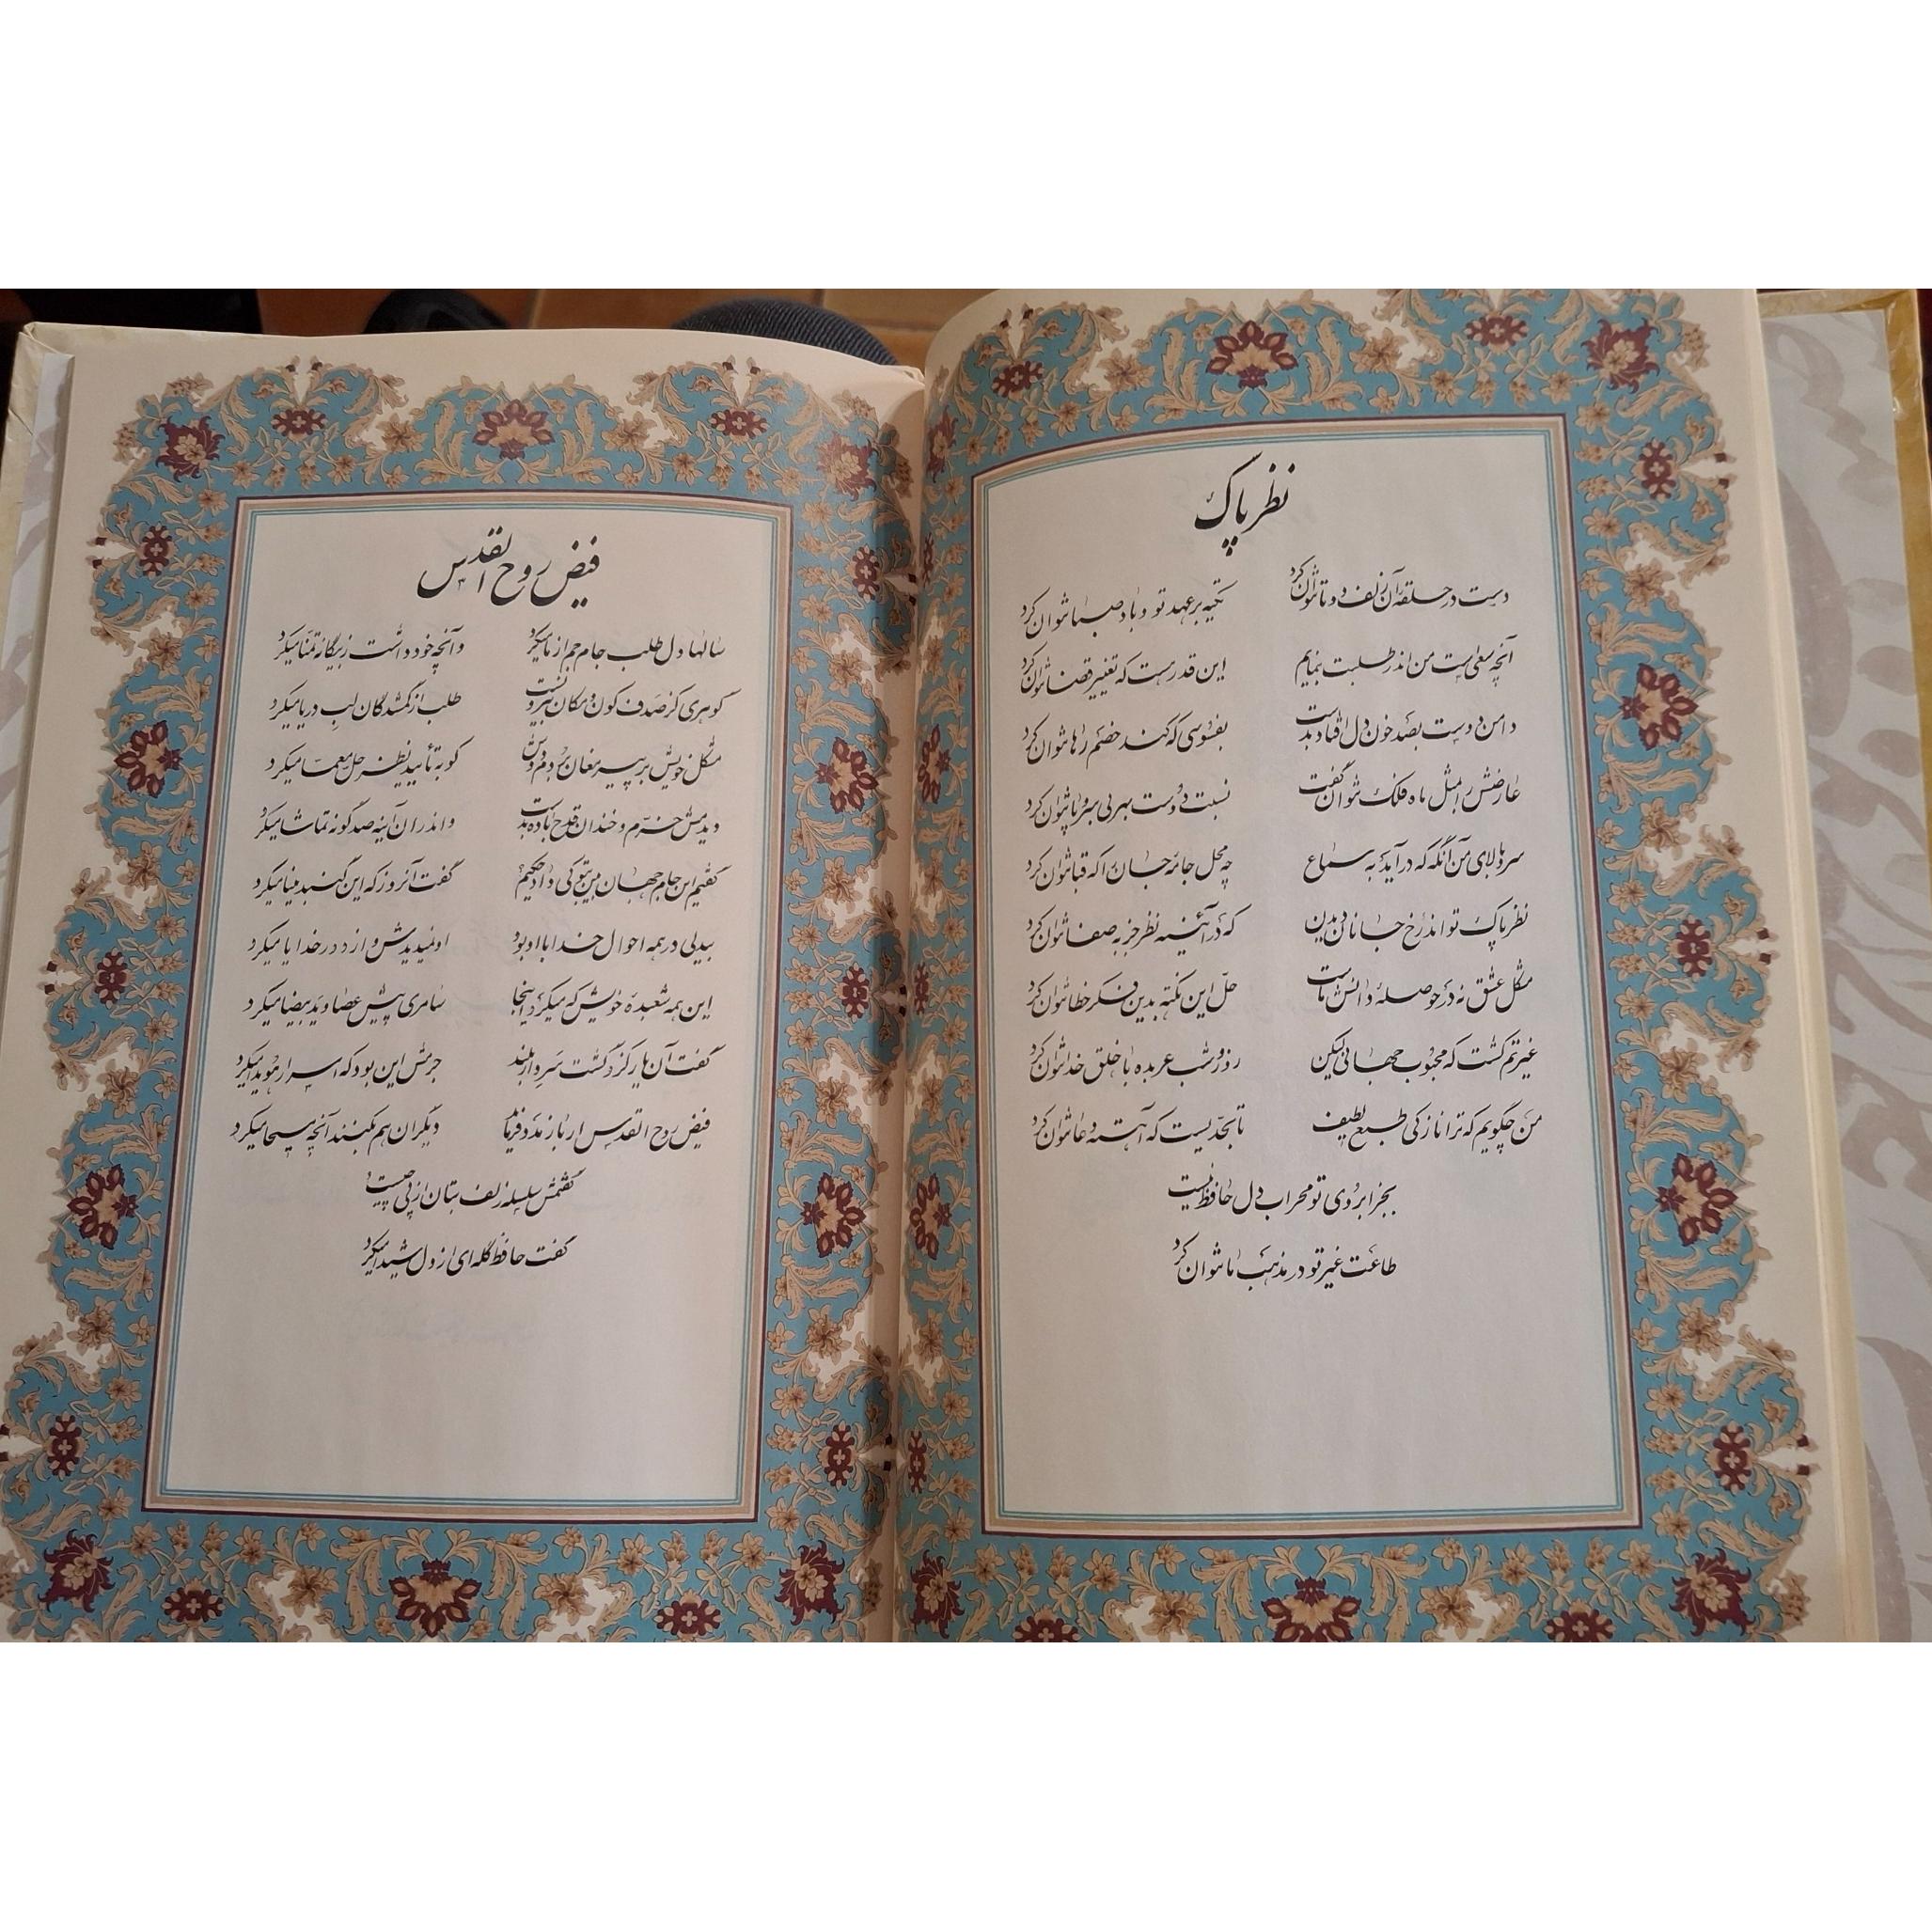 نظر پاک
دست در حلقه آن زلف دوتا نتوان کرد
تکیه بر عهد تو و باد صبا نتوان کرد
آنچه سعی است من اندر طلبت بنمایم
این قدر هست که تغییر قضا نتوان کرد
دامن دوست بصد خون دل افتاد بدست
بفسوسی که کند خصم رها نتوان کرد
عارضش را بمثل ماه فلک نتوان گفت
نسبت دوست بهر بی سر و پا نتوان کرد
سرو بالای من آنگه که درآید به سماع
چه محل جامه جان را که قبا نتوان کرد
نظر پاک تو اند رخ جانان دیدن
که در آئینه نظر جز به صفا نتوان کرد
مشکل عشق نه در حوصله دانش ماست
حل این نکته بدین فکر خطا نتوان کرد
غیرتم کشت که محبوب جهانی لیکن
روز و شب عربده با خلق خدا نتوان کرد
من چگویم که ترا نازکی طبع لطیف
تا بحدیست که آهسته دعا نتوان کرد
بجز ابروی تو محراب دل حافظ نیست
طاعت غیر تو در مذهب ما نتوان کرد
فیض روح القدس
سالها دل طلب جام جم از ما میکرد
وآنچه خود داشت ز بیگانه تمنا میکرد
گوهری کز صدف کون و مکان بیرونست
طلب از گمشدگان لب دریا میکرد
مشکل خویش بر پیر مغان بردم دوش
کو به تأیید نظر حل معما میکرد
دیدمش خرم و خندان قدح باده بدست
واندر آن آینه صد گونه تماشا میکرد
گفتم این جام جهان بین بتو کی داد حکیم
گفت آنروز که این گنبد مینا میکرد
بیدلی در همه احوال خدا با او بود
او نمیدیدش و از دور خدایا میکرد
این همه شعبده خویش که میکرد اینجا
سامری پیش عصا و ید بیضا میکرد
گفت آن یار کزو گشت سر دار بلند
جرمش این بود که اسرار هویدا میکرد
فیض روح القدس ار باز مدد فرماید
دیگران هم بکنند آنچه مسیحا میکرد
گفتمش سلسله زلف بتان از پی چیست
گفت حافظ گله ای از دل شیدا میکرد